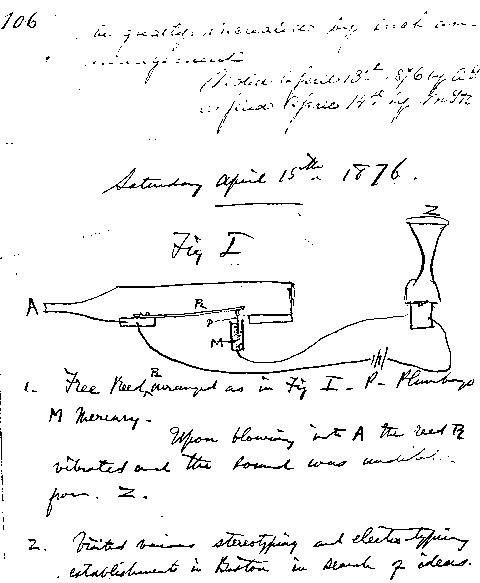 106
be greatly increased by such an
arrangement
April 13th 1876 by
April 14th by
Saturday April 15th 1876.
Fig I
Z
A
R
P
M
1. Free Reed R arranged as in Fig I - P - Plumbago
M Mercury.
Upon blowing into A the reed R
vibrated and the sound was audible
from Z.
2. Visited various stereotyping and electrotyping
establishments in Boston in search of ideas.